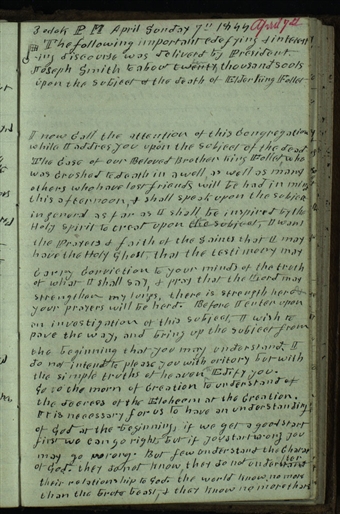 3 oclok P M April Sunday 7th 1844 April 7th
The following important edefying & interest
-ing discourse was deliverd by President
Joseph Smith to about twenty thousand souls
upon the subject of the death of Elder King Follet
I now call the attention of this congregation
while I address you upon the subject of the dead
The case of our Beloved Brother King Follet who
was crushed to death in a well, as well as many
others who have lost friends will be had in mind
this afternoon, & shall speak upon the subject
in general as far as I shall be inspired by the
Holy Spirit to treat upon the subject, I want
the Prayers & faith of the Saints that I may
have the Holy Ghost, that the testimony may
carry conviction to your minds of the truth
of what I shall say, & pray that the Lord may
strengthen my lungs, there is strength here &
your prayers will be herd. Before I enter upon
an investigation of this subject, I wish to
pave the way, and bring up the subject from
the beginning that you may understand. I
do not intend to please you with oritory but with
the simple truths of heaven to Edify you.
Go to the morn of Creation to understand of
the decrees of the Eloheem at the Creation.
It is necessary for us to have an understanding
of God at the beginning, if we get a good start
first we can go right, but if you start wrong you
may go wrong. But few understand the Charac
-ter
of God. they do not know, they do not understand
their relationship to God. the world know no more
than the brute beast, & they know no more than